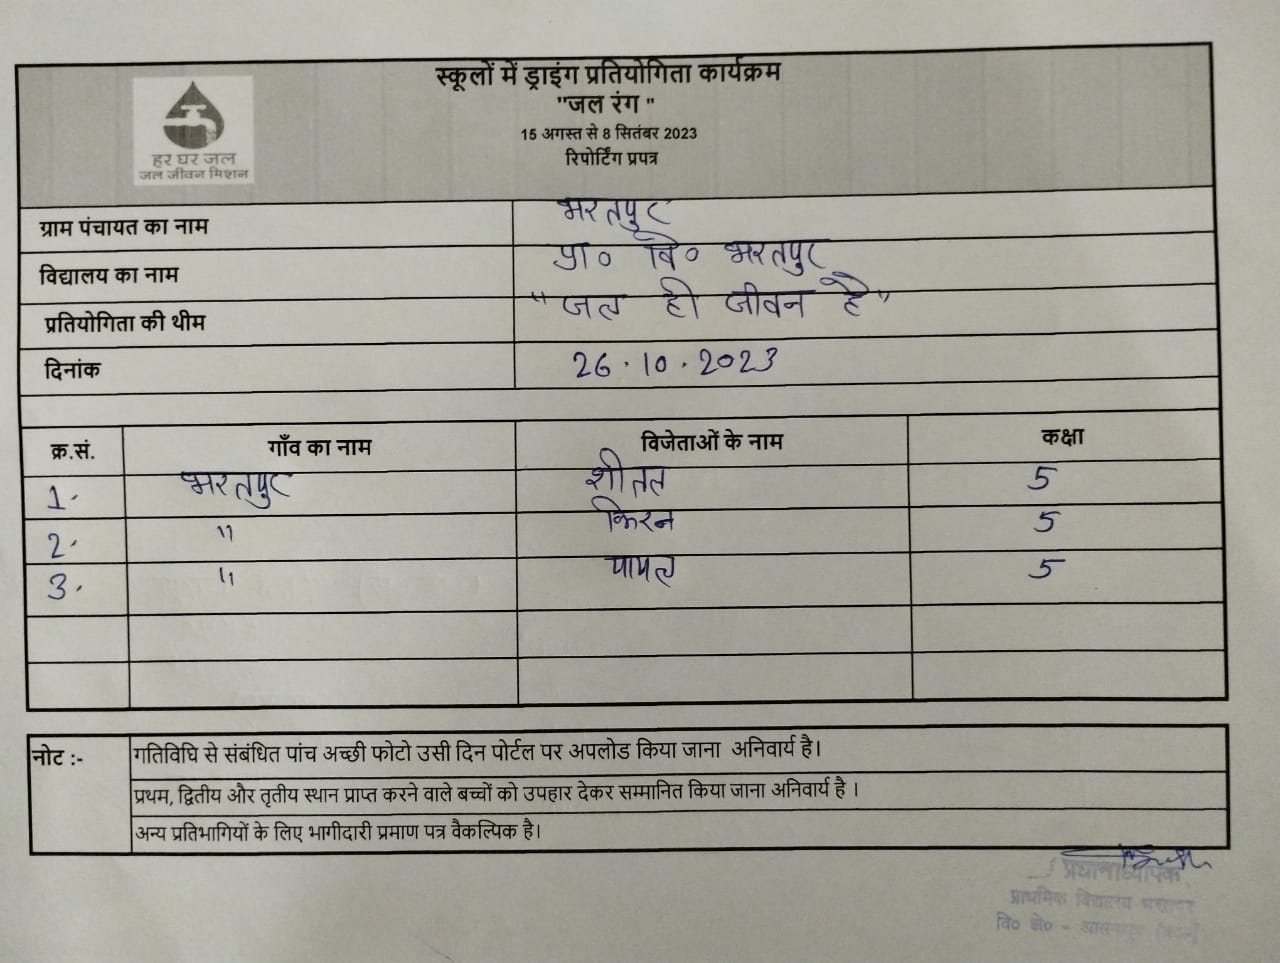 स्कूलों में ड्राइंग प्रतियोगिता कार्यक्रम
"जल रंग "
15 अगस्त से 8 सितंबर 2023
रिपोर्टिंग प्रपत्र
हर घर जल
जल जीवन मिशन
ग्राम पंचायत का नाम भरतपुर
विद्यालय का नाम प्रा० वि० भरतपुर
प्रतियोगिता की थीम "जल ही जीवन है"
दिनांक 26.10.2023
क्र.सं. गाँव का नाम विजेताओं के नाम कक्षा
1. भरतपुर शीतल 5
2. " किरन 5
3. " पायल 5
नोट :- गतिविधि से संबंधित पांच अच्छी फोटो उसी दिन पोर्टल पर अपलोड किया जाना अनिवार्य है।
प्रथम, द्वितीय और तृतीय स्थान प्राप्त करने वाले बच्चों को उपहार देकर सम्मानित किया जाना अनिवार्य है ।
अन्य प्रतिभागियों के लिए भागीदारी प्रमाण पत्र वैकल्पिक है।
प्रधानाध्यापक
प्राथमिक विद्यालय
वि० क्षे० -